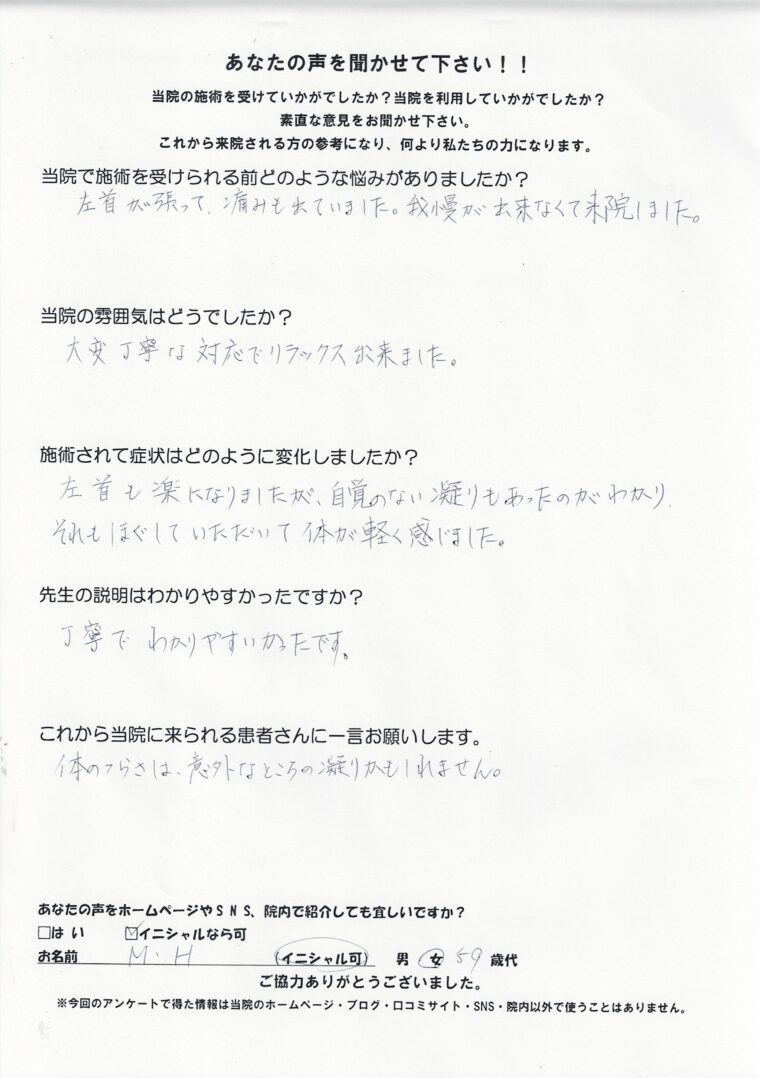 あなたの声を聞かせて下さい！！
当院の施術を受けていかがでしたか？当院を利用していかがでしたか？
素直な意見をお聞かせ下さい。
これから来院される方の参考になり、何より私たちの力になります。
当院で施術を受けられる前どのような悩みがありましたか？
左首が張って、痛みも出ていました。我慢が出来なくて来院しました。
当院の雰囲気はどうでしたか？
大変丁寧な対応でリラックス出来ました。
施術されて症状はどのように変化しましたか？
左首も楽になりましたが、自覚のない凝りもあったのがわかり
それもほぐしていただいて体が軽く感じました。
先生の説明はわかりやすかったですか？
丁寧でわかりやすいかったです。
これから当院に来られる患者さんに一言お願いします。
体のつらさは、意外なところの凝りかもしれません。
あなたの声をホームページやSNS、院内で紹介しても宜しいですか？
□はい ☑イニシャルなら可
お名前 M・H (イニシャル可) 男 女 59 歳代
ご協力ありがとうございました。
※今回のアンケートで得た情報は当院のホームページ・ブログ・口コミサイト・SNS・院内以外で使うことはありません。